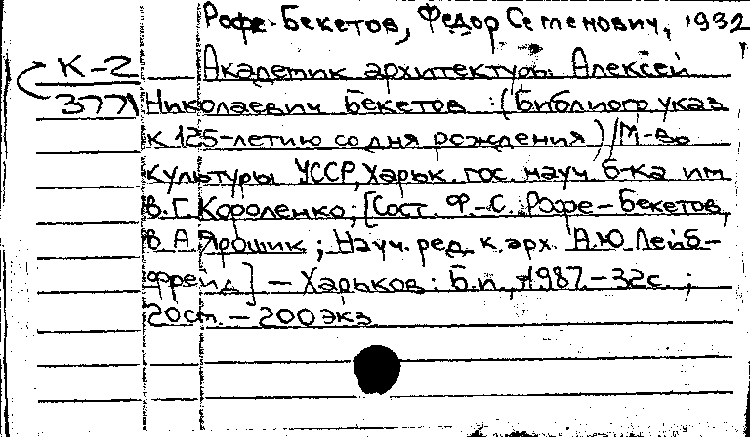 Рофе-Бекетов, Федор Семенович, 1932
К-2 Академик архитектуры Алексей
3771 Николаевич Бекетов : (Библиогр. указ
к 125-летию со дня рождения) / М-во
культуры УССР, Харьк. гос. науч. б-ка им
В. Г. Короленко; [Сост. Ф. С. Рофе-Бекетов,
В А Ярошик; Науч. ред. к. арх. А.Ю Лейб-
фрейд] — Харьков: Б.и., 1987.—32с. ;
20см. — 200 экз